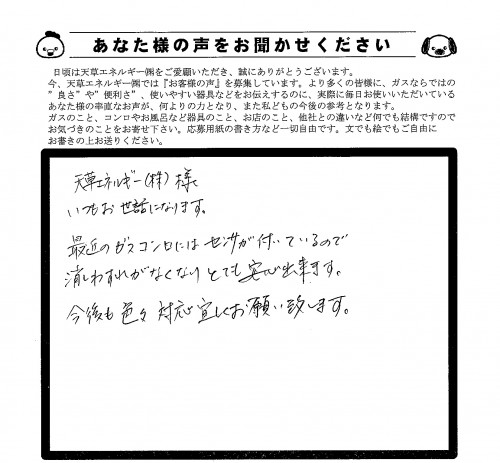 あなた様の声をお聞かせください
日頃は天草エネルギー㈱をご愛顧いただき、誠にありがとうございます。
今、天草エネルギー㈱では『お客様の声』を募集しています。より多くの皆様に、ガスならではの
”良さ”や”便利さ”、使いやすい器具などをお伝えするのに、実際に毎日お使いいただいている
あなた様の率直なお声が、何よりの力となり、また私どもの今後の参考となります。
ガスのこと、コンロやお風呂など器具のこと、お店のこと、他社との違いなど何でも結構ですので
お気づきのことをお寄せ下さい。応募用紙の書き方など一切自由です。文でも絵でもご自由に
お書きの上お送りください。
天草エネルギー(株)様
いつもお世話になります。
最近のガスコンロにはセンサが付いているので
消しわすれがなくなりとても安心出来ます。
今後も色々対応宜しくお願い致します。